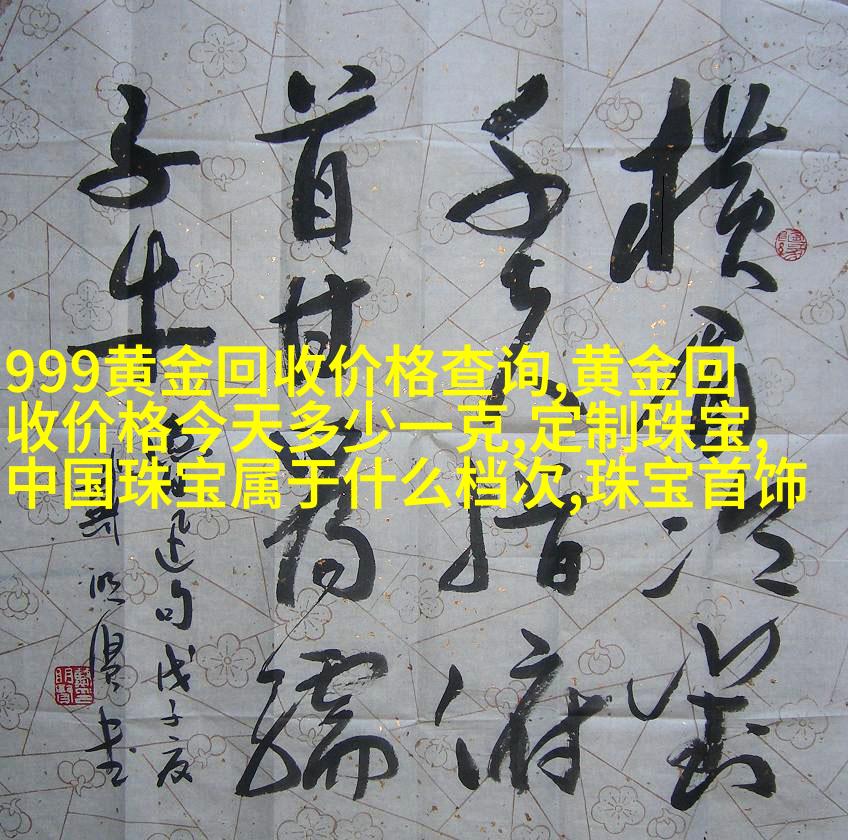 横眉冷对
千夫指俯
首甘为孺
子牛
迅句戊子夏
明
书
999黄金回收价格查询,黄金回
收价格今天多少一克,定制珠宝,
中国珠宝属于什么档次,珠宝首饰